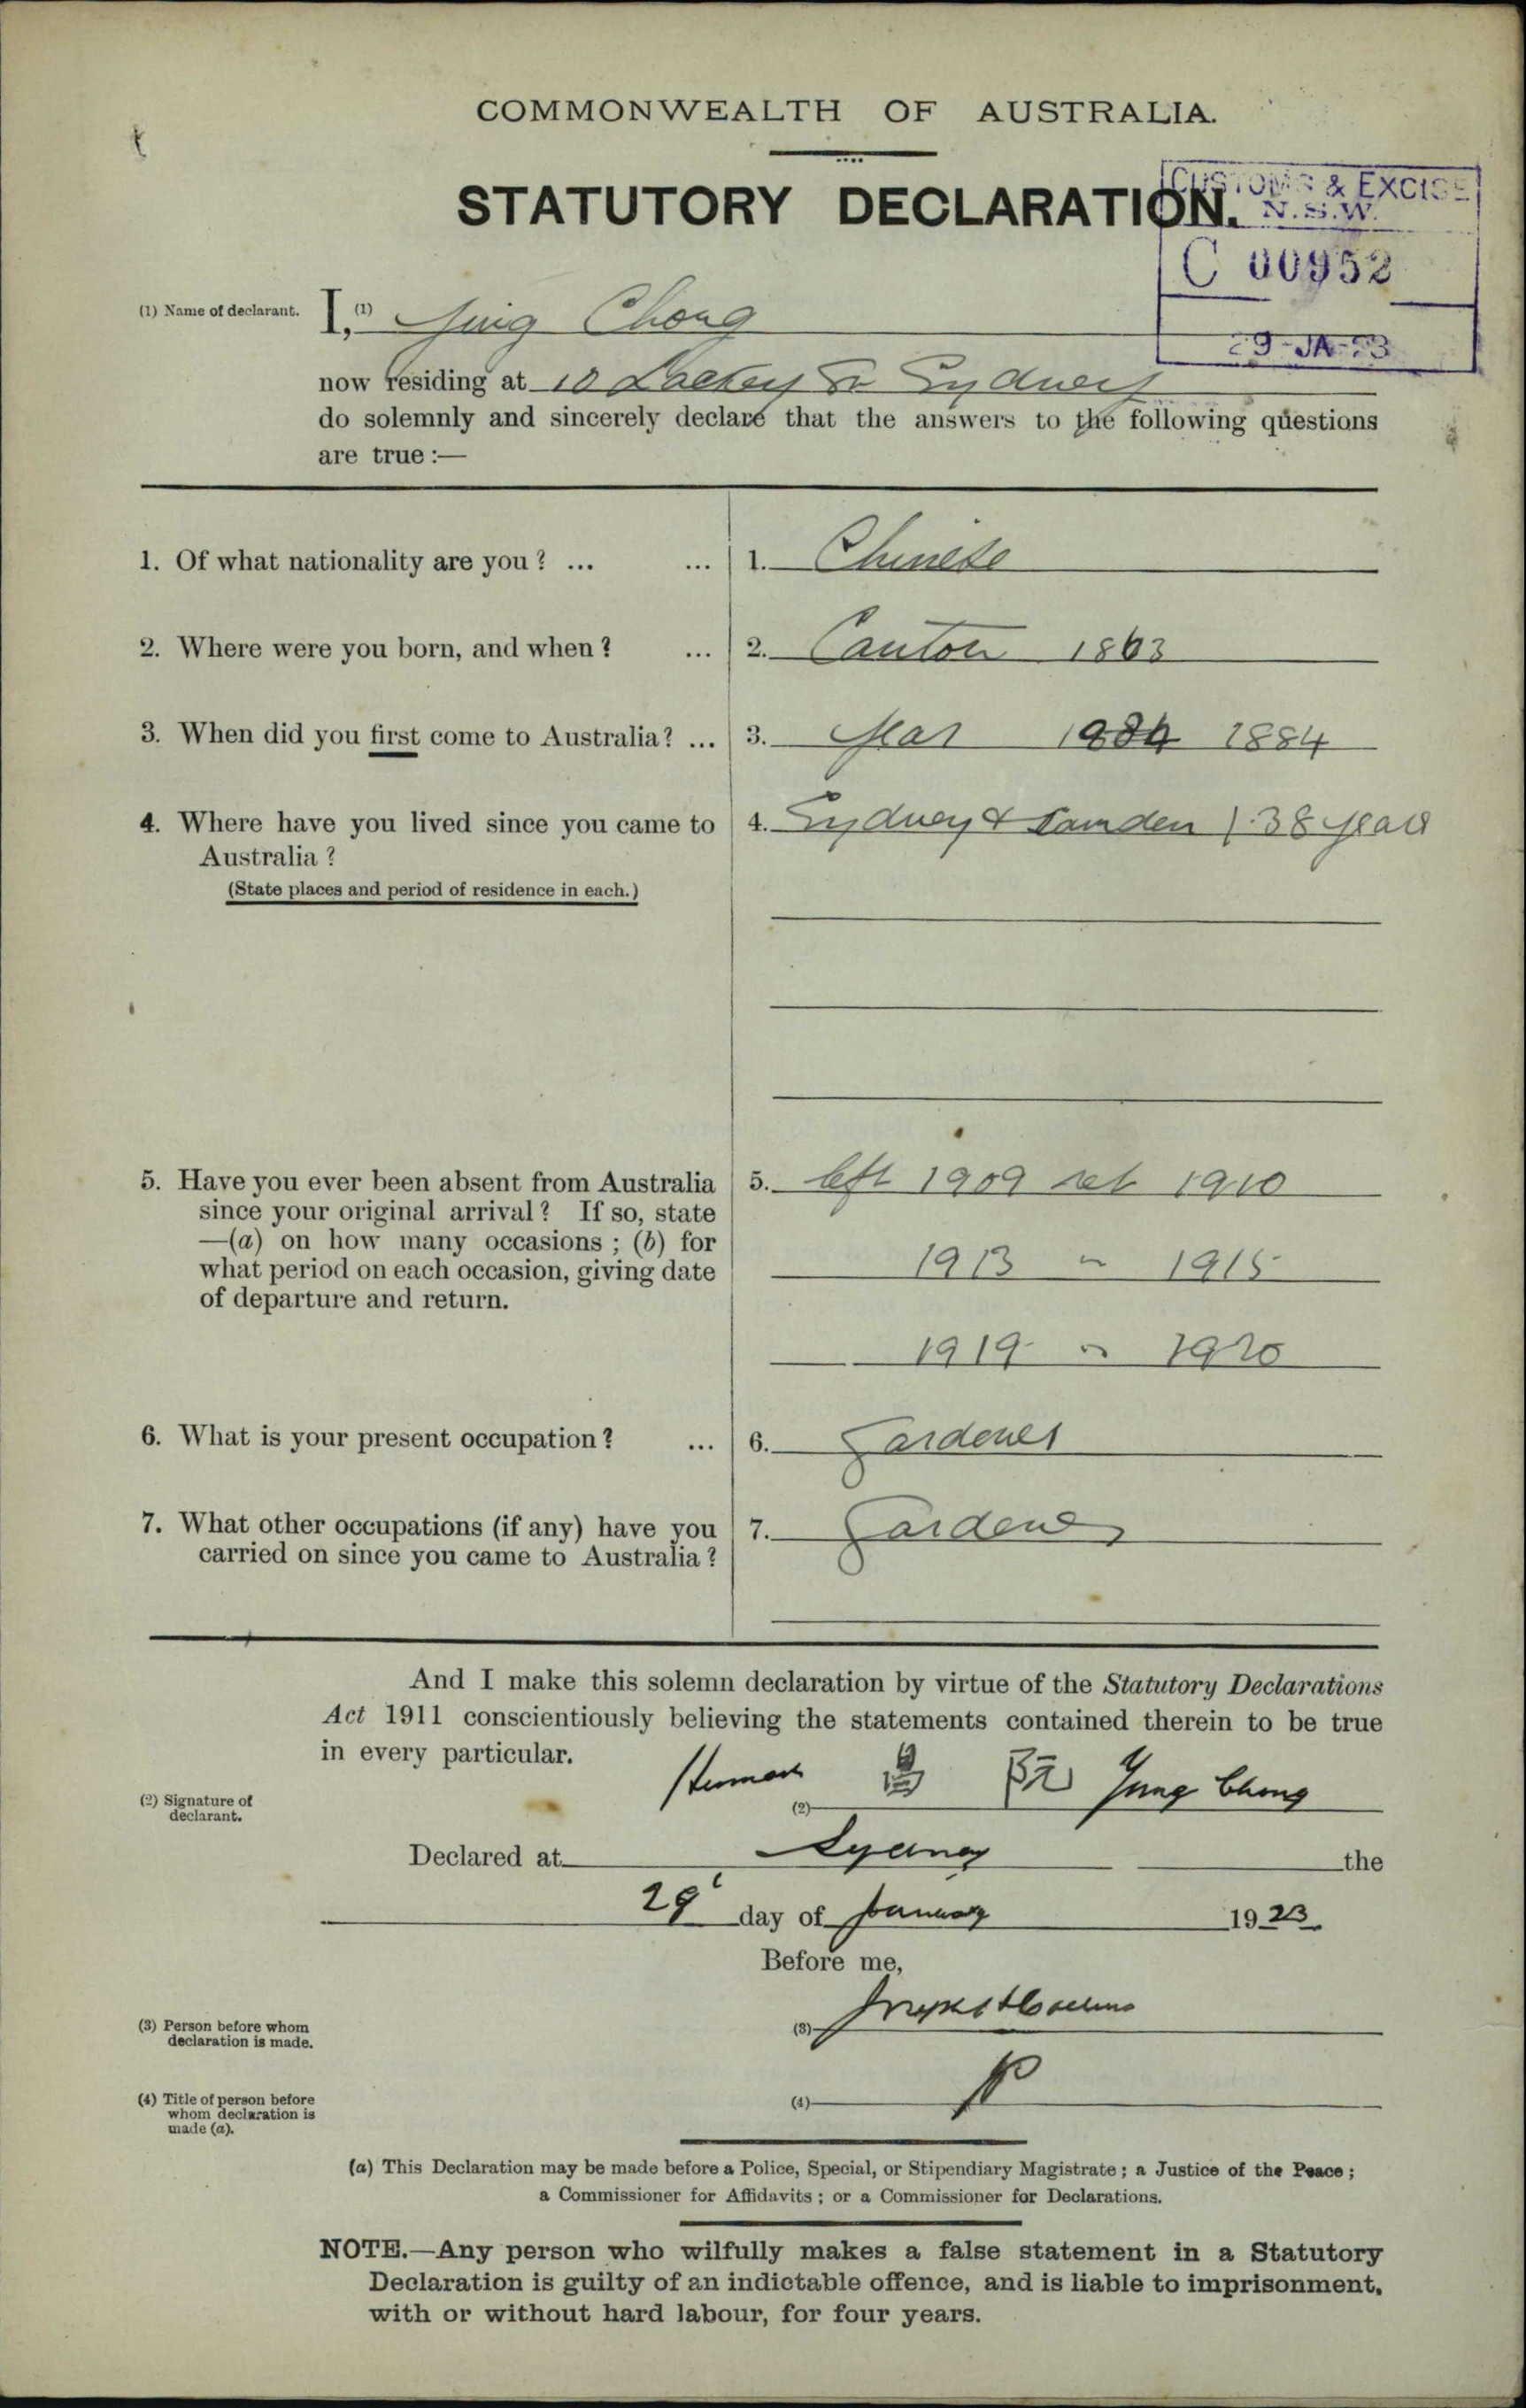 COMMONWEALTH OF AUSTRALIA.
STATUTORY DECLARATION.
CUSTOMS & EXCISE
N.S.W.
C 00952
29-JA-23
(1) Name of declarant.
I, (1) Chong
now residing at 10 Lackey St Sydney
do solemnly and sincerely declare that the answers to the following questions
are true :—
1. Of what nationality are you ? ... ... 1. Chinese
2. Where were you born, and when ? ... 2. Canton 1863
3. When did you first come to Australia ? ... 3. 1884
4. Where have you lived since you came to 4. Sydney & Camden 38 years
Australia ?
(State places and period of residence in each.)
5. Have you ever been absent from Australia 5. left 1909 ret 1910
since your original arrival ? If so, state
—(a) on how many occasions ; (b) for
1913 " 1915
what period on each occasion, giving date
of departure and return.
1919 " 1920
6. What is your present occupation ? ... 6. Gardener
7. What other occupations (if any) have you 7. Gardener
carried on since you came to Australia ?
And I make this solemn declaration by virtue of the Statutory Declarations
Act 1911 conscientiously believing the statements contained therein to be true
in every particular.
(2) Signature of
declarant.
(2) 阮 Yung Chong
Declared at Sydney the
29 day of January 1923
Before me,
(3) Person before whom
declaration is made.
(3)
(4) Title of person before
whom declaration is
made (a).
(4) JP
(a) This Declaration may be made before a Police, Special, or Stipendiary Magistrate ; a Justice of the Peace ;
a Commissioner for Affidavits ; or a Commissioner for Declarations.
NOTE.—Any person who wilfully makes a false statement in a Statutory
Declaration is guilty of an indictable offence, and is liable to imprisonment,
with or without hard labour, for four years.